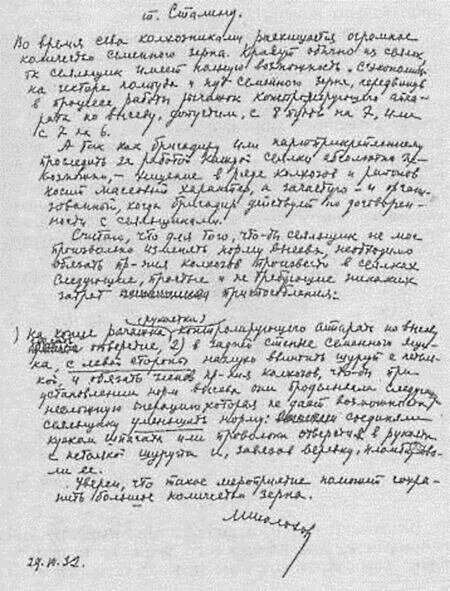 т. Сталину.
Во время сева колхозниками расхищается огромное
количество семенного зерна. Крадут обычно из сеялок,
т.к. сеяльщик имеет полную возможность "сэкономить"
на гектаре полпуда и пуд семенного зерна, передвинув
в процессе работы рычажок контролирующего аппа-
рата по высеву, допустим, с 8 пудов на 7, или
с 7 на 6.
А так как бригадиру или партприкрепленному
проследить за работой каждой сеялки абсолютно не-
возможно, – хищение в ряде колхозов и районов
носит массовый характер, а зачастую – и органи-
зованный, когда бригадир действует по договорен-
ности с сеяльщиками.
Считаю, что для того, что-бы сеяльщик не мог
произвольно изменять норму высева, необходимо
обязать пр-ния колхозов произвести в сеялках
следующие, простые и не требующие никаких
затрат приспособления:
(рукоятки)
1) на конце рычажка контролирующего аппарат по высеву,
отверстие, 2) в задней стенке семенного ящи-
ка, с левой стороны наглухо ввинтить шуруп с петел-
кой и обязать членов пр-ния колхозов, что-бы при
установлении норм высева они проделывали следующую
несложную операцию, которая не дает возможности
сеяльщику уменьшать норму: соединяли
куском шпагата или проволоки отверстие в рукоятке
с петелкой шурупа и, завязав веревку, пломбирова-
ли ее.
Уверен, что такое мероприятие поможет сохра-
нить большое количество зерна.
М. Шолохов
29.
32.